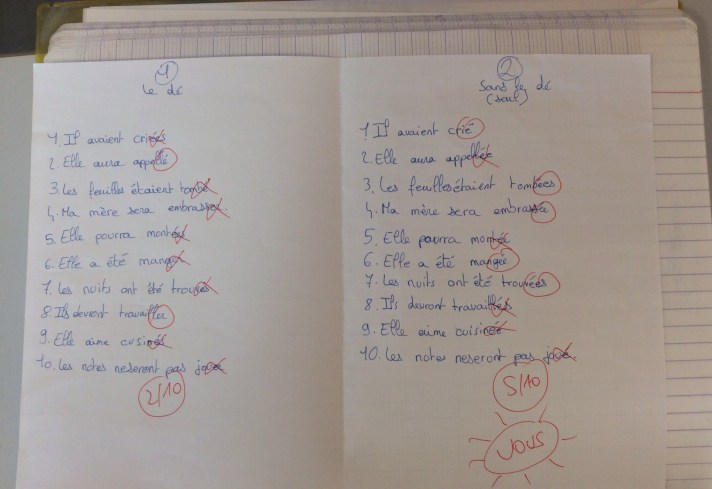 1
Le dé
1. Il avaient
2. Elle aura appellé
3. Les feuilles étaient tombé
4. Ma mère sera
5. Elle pourra
6. Elle a été
7. Les nuits ont été
8. Ils devront travailler
9. Elle aime
10. Les notes neseront pas
2/10
2
Sans le dé
(seul)
1 Il avaient crié
2. Elle aura appellée
3. Les feuilles étaient tombées
4. Ma mère sera embrassée
5. Elle pourra montée
6. Elle a été mangée
7. Les nuits ont été trouvées
8. Ils devront travaillés
9. Elle aime cuisinée
10. Les notes neseront pas
5/10
VOUS